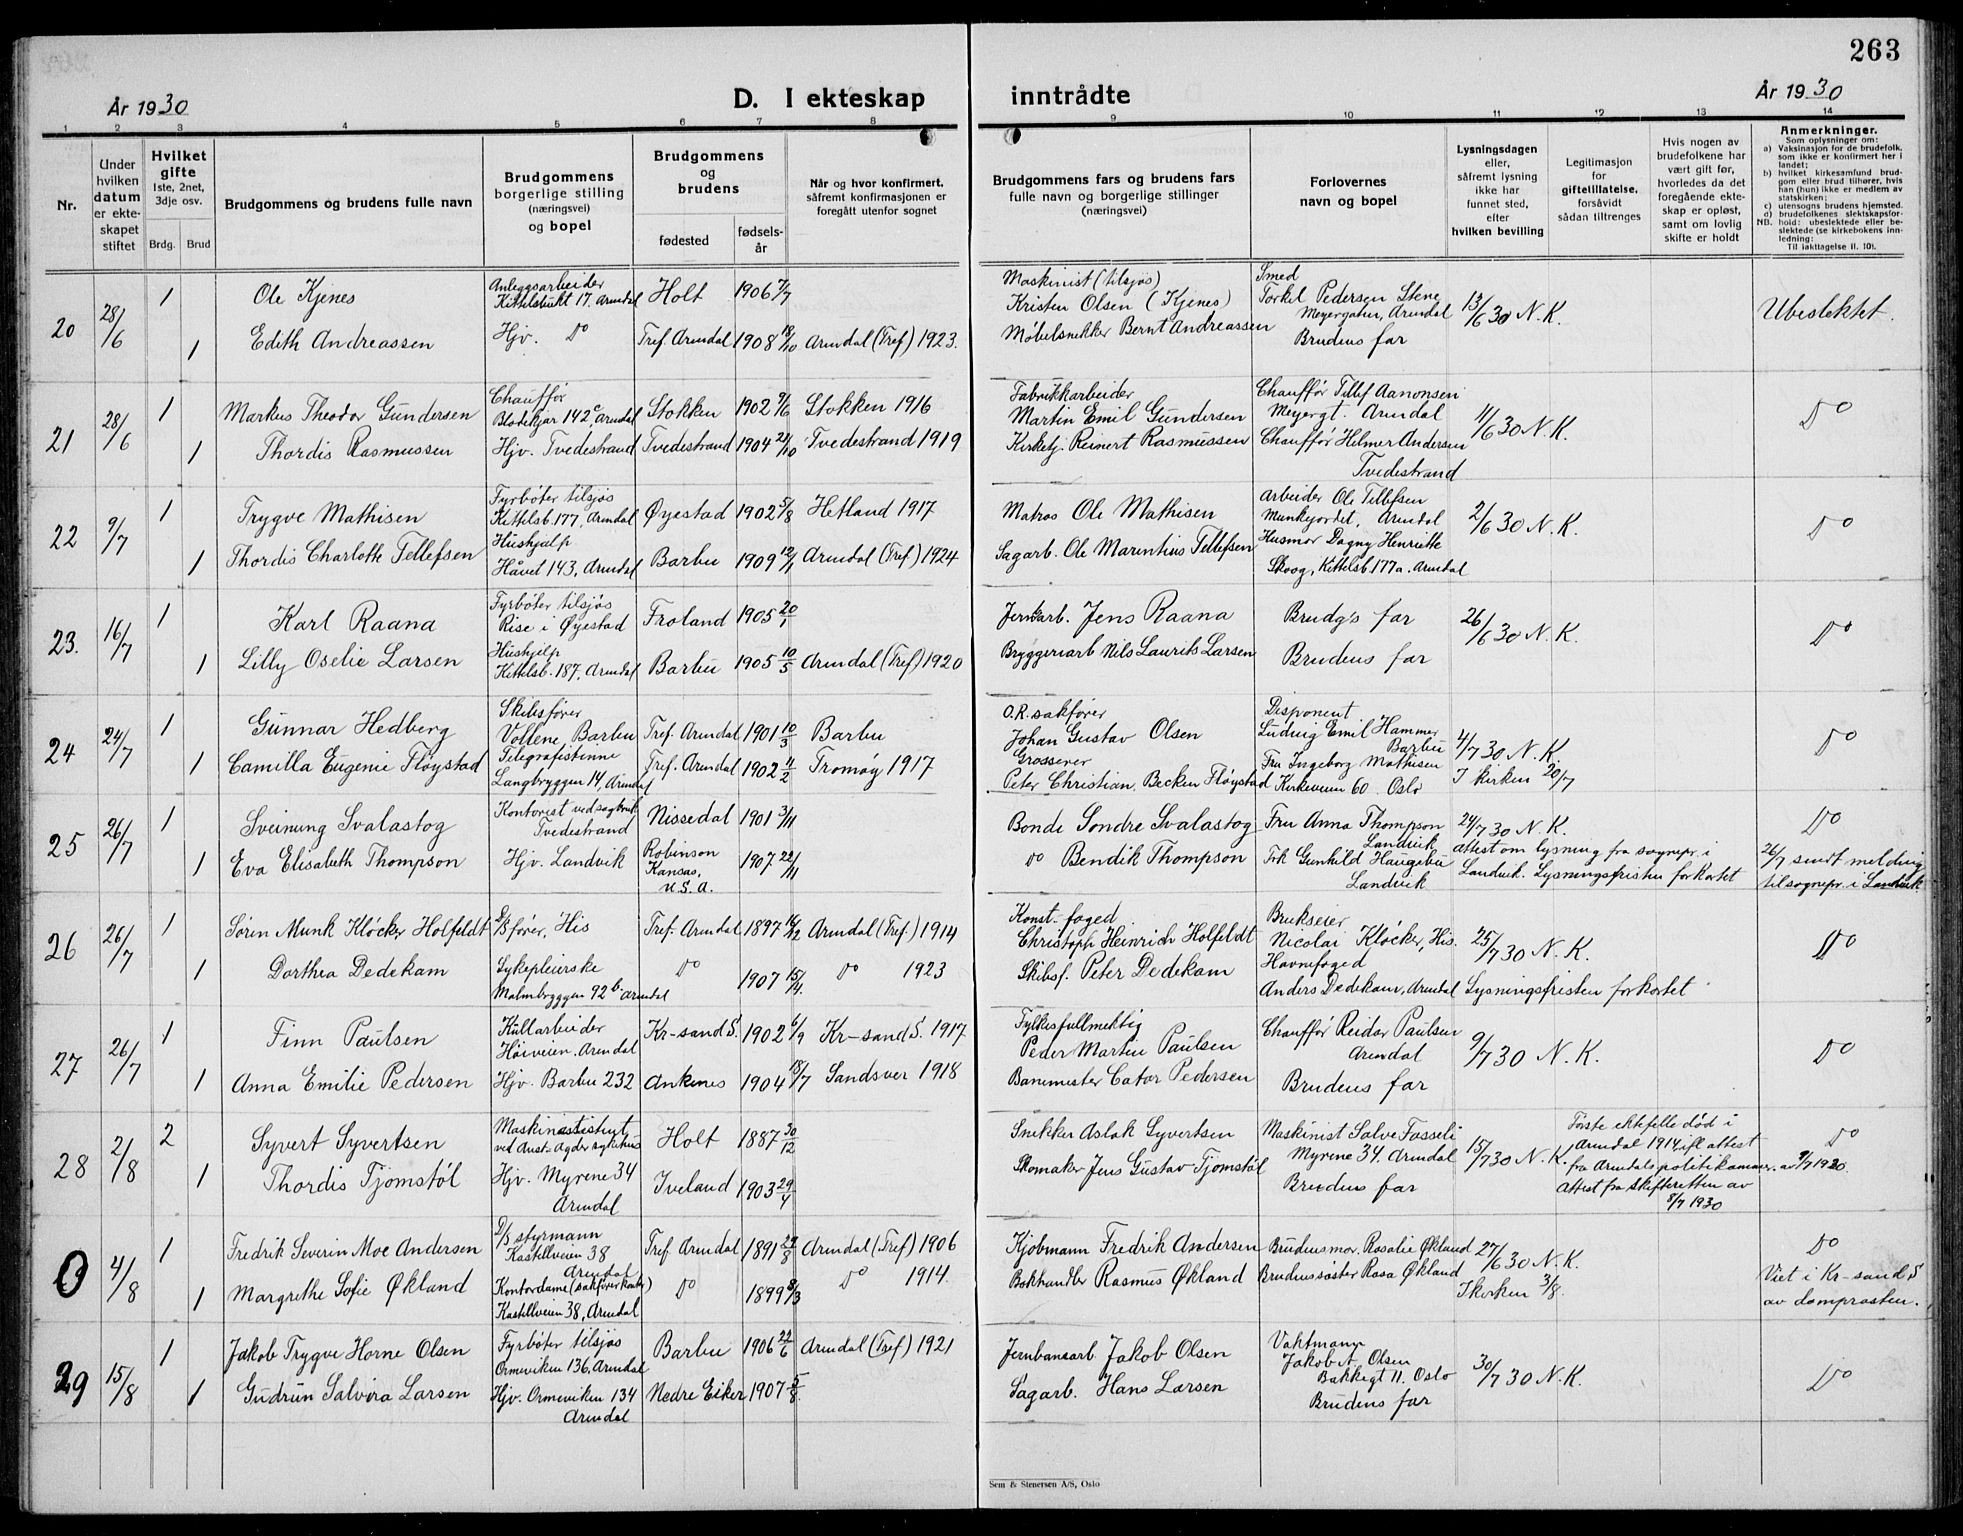 263
År 1930
D. I ekteskap inntrådte
År 1930
1 2 3 4 5 6 7 8 9 10 11 12 13 14
Nr.
Under hvilken datum er ekteskapet stiftet
Hvilket gifte 1ste, 2net, 3dje osv.
Brdg. Brud
Brudgommens og brudens fulle navn
Brudgommens borgerlige stilling (næringsvei) og bopel
Brudgommens og brudens
fødested
fødselsår
Når og hvor konfirmert, såfremt konfirmasjonen er foregått utenfor sognet
Brudgommens fars og brudens fars fulle navn og borgerlige stillinger (næringsvei)
Forlovernes navn og bopel
Lysningsdagen eller, såfremt lysning ikke har funnet sted, efter hvilken bevilling
Legitimasjon for giftetillatelse, forsåvidt sådan tiltrenges
Hvis nogen av brudefolkene har vært gift før, hvorledes da det foregående ekteskap er opløst, samt om lovlig skifte er holdt
Anmerkninger.
Som oplysninger om:
a) Vaksinasjon for de brudefolk, som ikke er konfirmert her i landet;
b) hvilket kirkesamfund brudgom eller brud tilhører, hvis han (hun) ikke er medlem av statskirken;
c) utensogns brudens hjemsted.
d) brudefolkenes slektskapsforhold: ubeslektede eller beslektede (se kirkebokens innledning:
NB. Til iakttagelse II. 10).
20 28/6 1 Ole Kjenes Anleggsarbeider Kittelsbukt 17. Arendal Holt 1906 7/7 Maskinist (tilsjøs) Kristen Olsen (Kjenes) Smed Torkel Pedersen Stene Meyergaten, Arendal 13/6 30 N.K. Ubeslektet.
1 Edith Andreassen Hjv. Do Tref. Arendal 1908 18/10 Arendal (Tref) 1923. Møbelsnikker Bernt Andreassen Brudens far
21 28/6 1 Markus Theodor Gundersen Chauffør Blødekjær 142c Arendal Stokken 1902 9/6 Stokken 1916 Fabrikkarbeider Martin Emil Gundersen Chauffør Tellef Aanonsen Meyergt. Arendal 11/6 30 N.K. Do
1 Thordis Rasmussen Hjv. Tvedestrand Tvedestrand 1904 21/10 Tvedestrand 1919 Kirketj. Reinert Rasmussen Chauffør Helmer Andersen Tvedestrand
22 9/7 1 Trygve Mathisen Fyrbøter tilsjøs Kittelsb. 177, Arendal Øyestad 1902 5/8 Hetland 1917 Matros Ole Mathisen Arbeider Ole Tellefsen Munkejordet, Arendal 2/6 30 N.K. Do
1 Thordis Charlotte Tellefsen Hushjelp Håvet 143, Arendal Barbu 1909 12/1 Arendal (Tref) 1924 Sagarb. Ole Marentius Tellefsen Husmor Dagny Henriette Skoog, Kittelsb. 177a. Arendal
23. 16/7 1 Karl Raana Fyrbøter tilsjøs Rise i Øyestad Froland 1905 20/1 Jernarb. Jens Raana Brudg's far 26/6 30 N.K. Do
1 Lilly Oselie Larsen Hushjelp Kittelsb. 187, Arendal Barbu 1905 10/5 Arendal (Tref) 1920 Bryggeriarb Nils Laurits Larsen Brudens far
24 24/7 1 Gunnar Hedberg Skibsfører Vollene, Barbu Tref. Arendal 1901 10/3 Barbu O.R. sakfører Johan Gustav Olsen Disponent Ludvig Emil Hammer Barbu 4/7 30 N.K. Do
1 Camilla Eugenie Fløystad Telegrafistinne Langbryggen 14, Arendal Tref. Arendal 1902 11/2 Tromøy 1917 Grosserer Peter Christian Becken Fløystad Fru Ingeborg Mathisen Kirkeveien 60. Oslo I kirken 20/7
25 26/7 1 Sveinung Svalastog Kontorist ved sagbruk Tvedestrand Nissedal 1901 3/11 Bonde Sondre Svalastog Fru Anna Thompson Landvik 24/7 30 N.K. Do
1 Eva Elisabeth Thompson Hjv. Landvik Robinson Kansas, U.S.A. 1907 22/11 Do Bendik Thompson Frk Gunhild Haugebu Landvik Attest om lysning fra sognepr. i Landvik. Lysningsfristen forkortet 26/7 sendt melding til sognepr. i Landvik
26 26/7 1 Søren Munk Kløcker Holfeldt D/S fører, His Tref. Arendal 1897 14/12 Arendal (Tref.) 1914 Konst. foged. Christoph Heinrich Holfeldt Brukseier Nicolai Kløcker, His. 25/7 30 N.K. Do
1 Dorthea Dedekam Sykepleierske Malmbryggen 92b. Arendal Do 1907 15/4. Do 1923 Skibsf. Peter Dedekam Havnefoged Anders Dedekam, Arendal Lysningsfristen forkortet
27 26/7 1 Finn Paulsen Kullarbeider Høiveien. Arendal Kr-sand S. 1902 6/9 Kr-sand S. 1917 Fylkesfullmektig Peder Martin Paulsen Chauffør Reidar Paulsen Arendal 9/7 30 N.K. Do
1 Anna Emilie Pedersen Hjv. Barbu 232 Ankenes 1904 18/7 Sandsver 1918 Banemester Cator Pedersen Brudens far
28 2/8 2 Syvert Syvertsen Maskinassistent ved Aust-Agder sykehus Holt 1887 30/12 Snikker Aslak Syvertsen Maskinist Salve Fosseli Myrene 34. Arendal 15/7 30 N.K. Første ektefelle død i Arendal 1914, ifl. attest fra Arendals politikammer. av 9/7 1930. Attest fra skifteretten av 8/7 1930 Do
1 Thordis Tjomstøl Hjv. Myrene 34 Arendal Iveland 1903 29/4 Skomaker Jens Gustav Tjomstøl Brudens far
0 4/8 1 Fredrik Severin Moe Andersen D/S styrmann Kastellveien 38 Arendal Tref. Arendal 1891 29/8 Arendal (Tref) 1906 Kjøbmann Fredrik Andersen Brudens mor. Rosalie Økland 27/6 30 N.K. Do
1 Margrethe Sofie Økland Kontordame (sakførerkontor) Kastellveien 38, Arendal Do 1899 8/3 Do 1914. Bokhandler Rasmus Økland Brudens søster Rosa Økland I kirken 3/8. Viet i Kr-sand S av domprosten.
29 15/8 1 Jakob Trygve Horne Olsen Fyrbøter tilsjøs Ormeviken 136, Arendal Barbu 1906 22/6 Arendal (Tref) 1921 Jernbanearb. Jakob Olsen Vaktmann Jakob A. Olsen Bakkegt 11. Oslo 30/7 30 N.K. Do
1 Gudrun Salvora Larsen Hjv. Ormeviken 134 Arendal Nedre Eiker 1907 5/8. Sagarb. Hans Larsen Brudens far
Sem & Stenersen A/S, Oslo